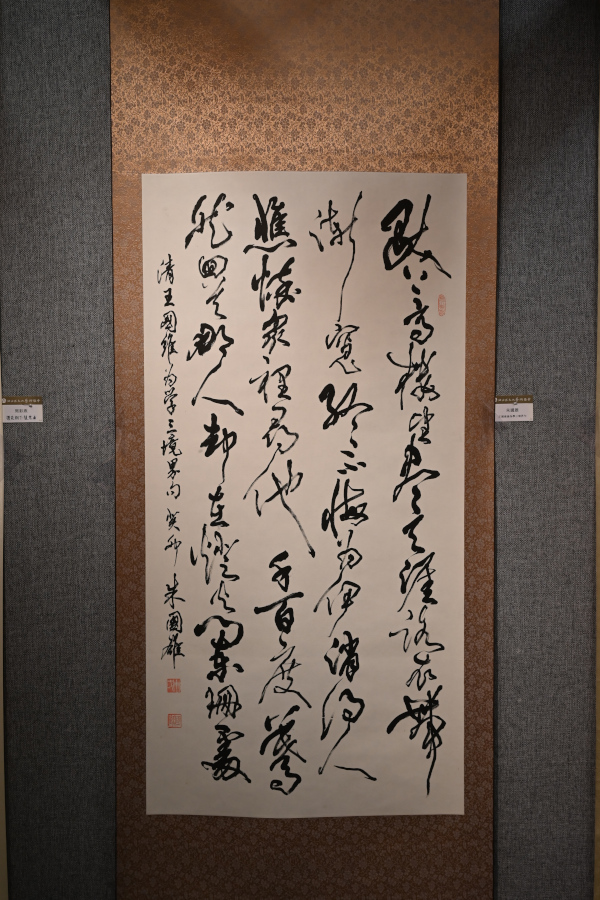 獨上高樓望盡天涯路衣帶
漸寬終不悔為伊消得人
憔悴衆裡尋他千百度驀
然回首那人却在燈火闌珊處
清王國維為學三境界句 癸卯 朱國雄